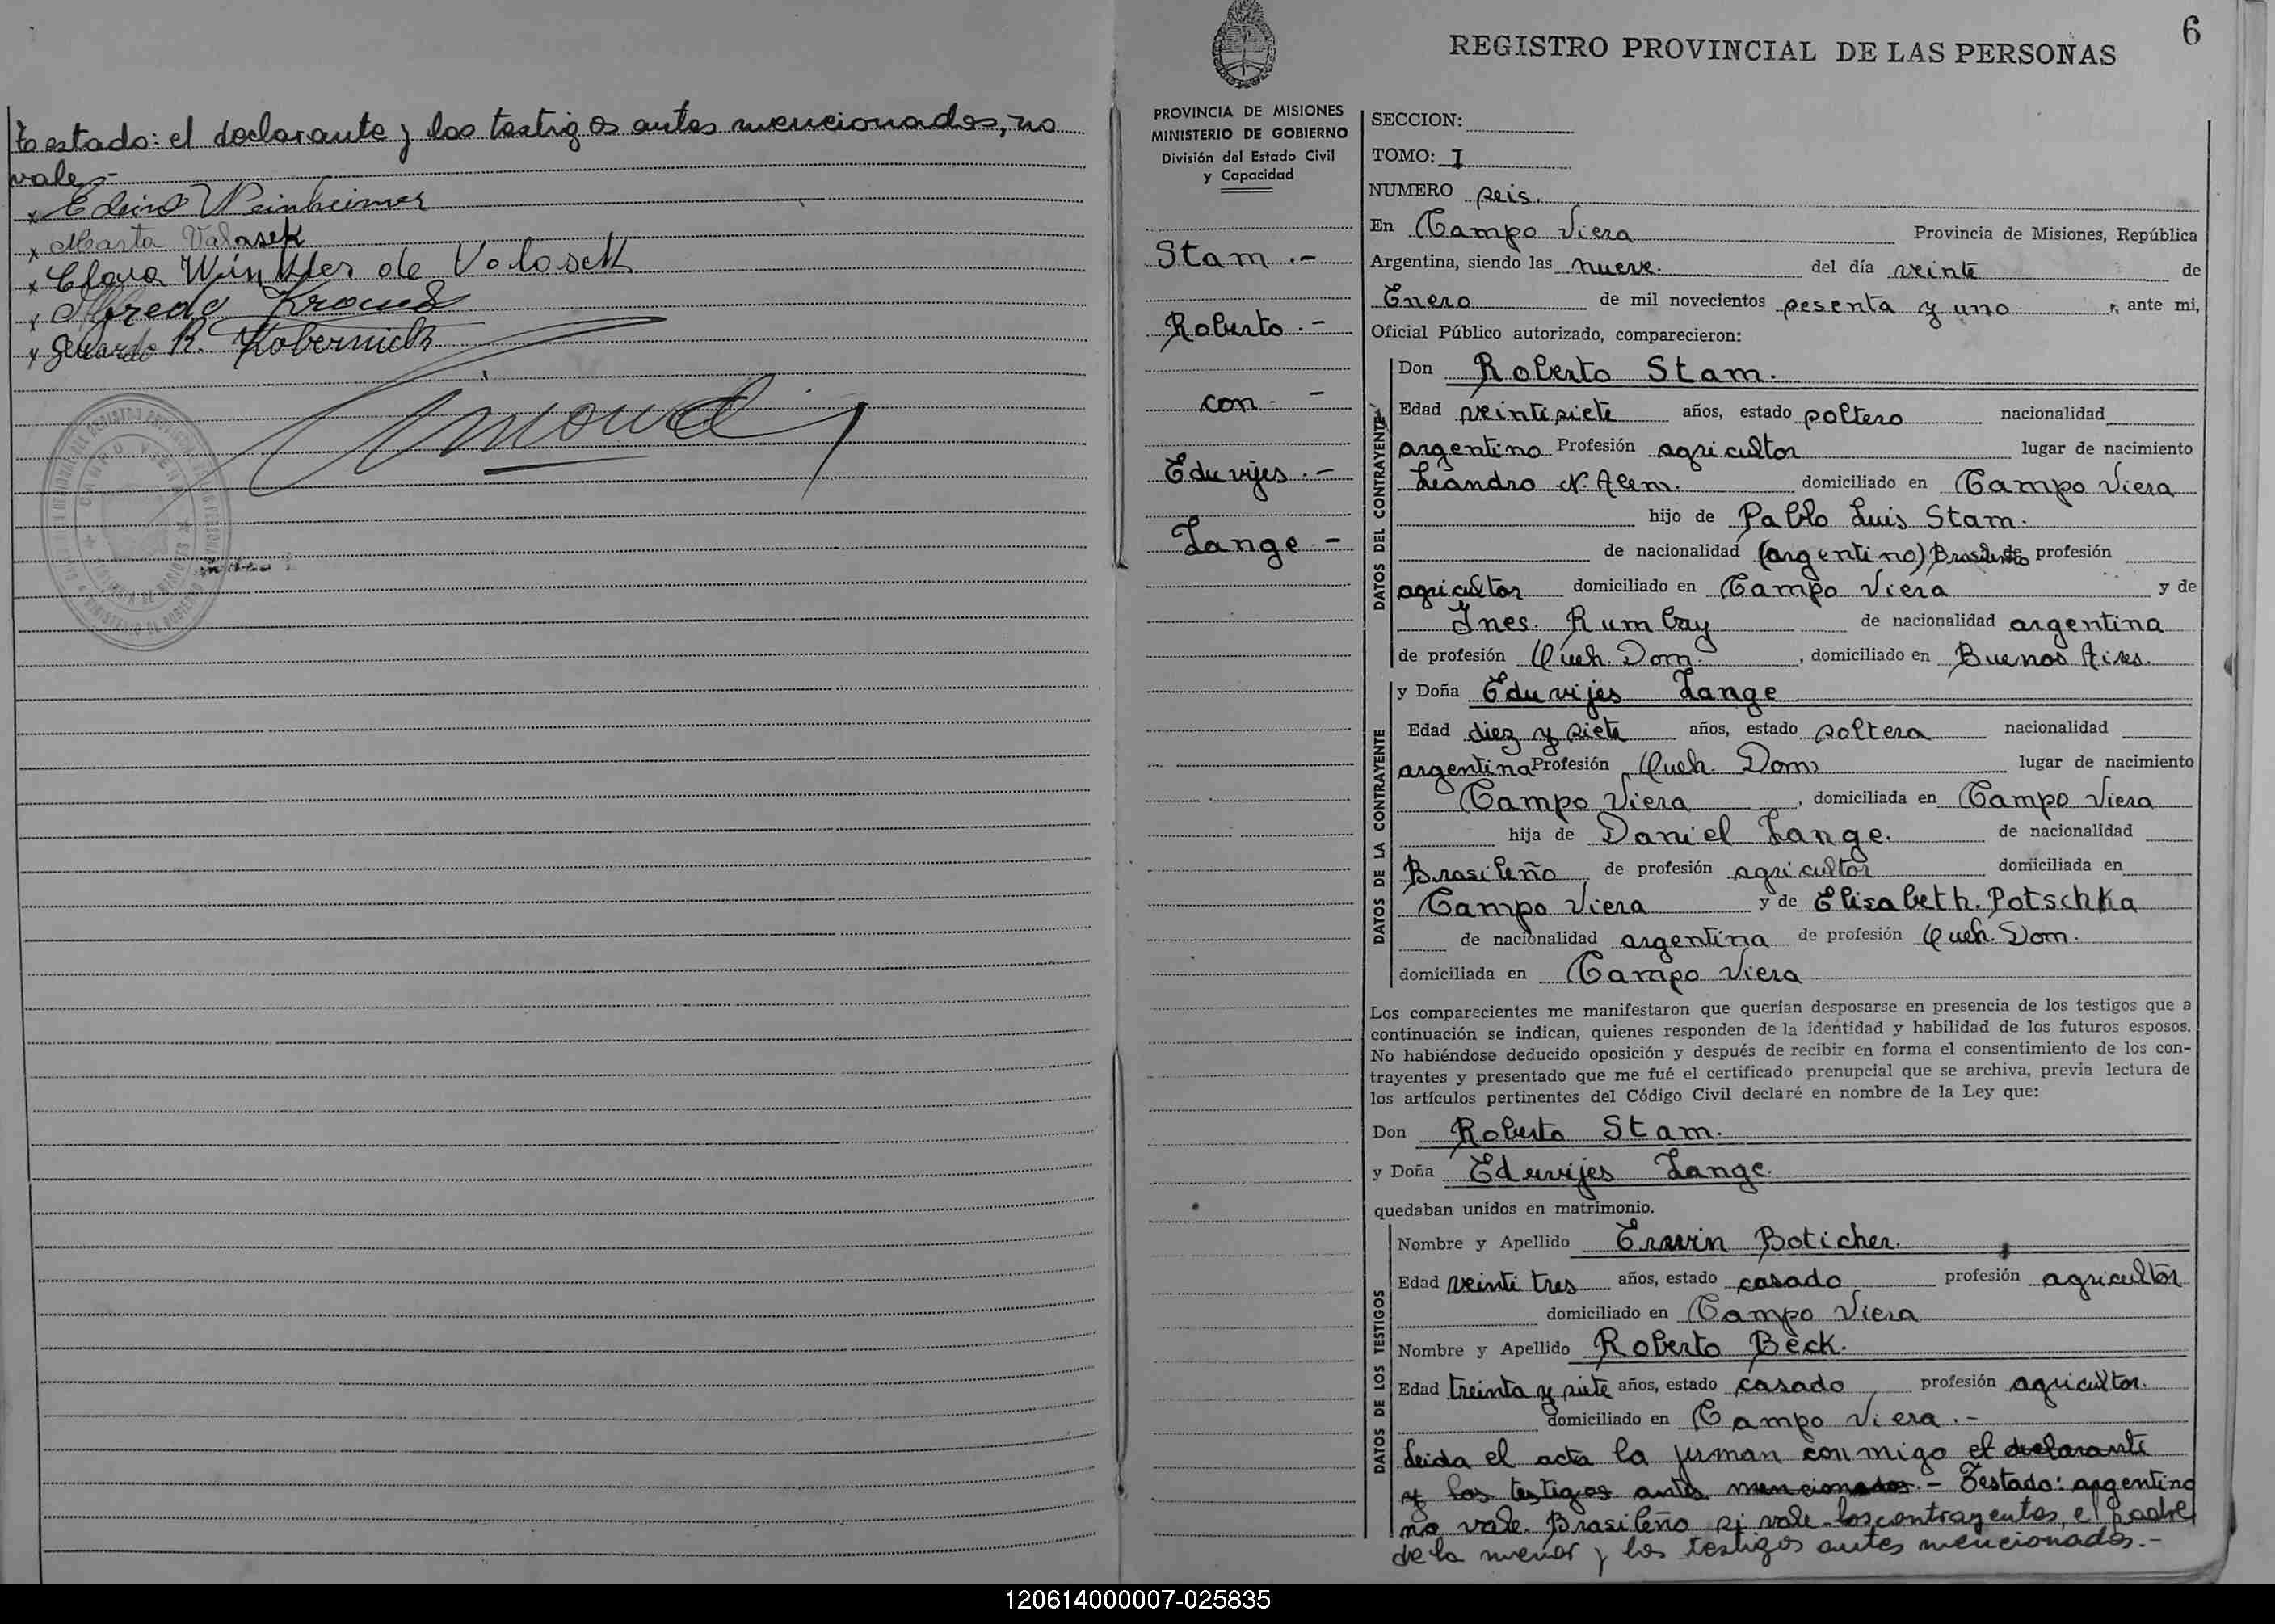 testado: el declarante y los testigos antes mencionados, no
vale.-
x Edino Weinheimer
x Marta Valasek
x Clara Winkler de Volosek
x Alfredo Kraus
x Gerardo R. Kobernick
6
REGISTRO PROVINCIAL DE LAS PERSONAS
PROVINCIA DE MISIONES
MINISTERIO DE GOBIERNO
División del Estado Civil
y Capacidad
Stam.-
Roberto.-
con -
Eduvijes.-
Lange -
SECCION:
TOMO: I
NUMERO seis.
En Campo Viera Provincia de Misiones, República
Argentina, siendo las nueve. del día veinte de
Enero de mil novecientos sesenta y uno, ante mi,
Oficial Público autorizado, comparecieron:
DATOS DEL CONTRAYENTE
Don Roberto Stam.
Edad veintisiete años, estado soltero nacionalidad
argentino Profesión agricultor lugar de nacimiento
Leandro N. Alem. domiciliado en Campo Viera
hijo de Pablo Luis Stam.
de nacionalidad (argentino) Brasileño profesión
agricultor domiciliado en Campo Viera y de
Ines. Rumbay de nacionalidad argentina
de profesión Queh. Dom. , domiciliado en Buenos Aires.
DATOS DE LA CONTRAYENTE
y Doña Eduvijes Lange
Edad diez y siete años, estado soltera nacionalidad
argentina Profesión Queh. Dom lugar de nacimiento
Campo Viera , domiciliada en Campo Viera
hija de Daniel Lange. de nacionalidad
Brasileño de profesión agricultor domiciliada en
Campo Viera y de Elisabeth. Potschka
de nacionalidad argentina de profesión Queh. Dom.
domiciliada en Campo Viera
Los comparecientes me manifestaron que querían desposarse en presencia de los testigos que a
continuación se indican, quienes responden de la identidad y habilidad de los futuros esposos.
No habiéndose deducido oposición y después de recibir en forma el consentimiento de los con-
trayentes y presentado que me fué el certificado prenupcial que se archiva, previa lectura de
los artículos pertinentes del Código Civil declaré en nombre de la Ley que:
Don Roberto Stam.
y Doña Eduvijes Lange.
quedaban unidos en matrimonio.
DATOS DE LOS TESTIGOS
Nombre y Apellido Erwin Boticher.
Edad veinti tres años, estado casado profesión agricultor
domiciliado en Campo Viera
Nombre y Apellido Roberto Beck.
Edad treinta y siete años, estado casado profesión agricultor.
domiciliado en Campo Viera.-
Leida el acta la firman conmigo el declarante
y los testigos antes mencionados.- Testado: argentino
no vale. Brasileño si vale. los contrayentes, el padre
de la menor y los testigos antes mencionados.-
120614000007-025835